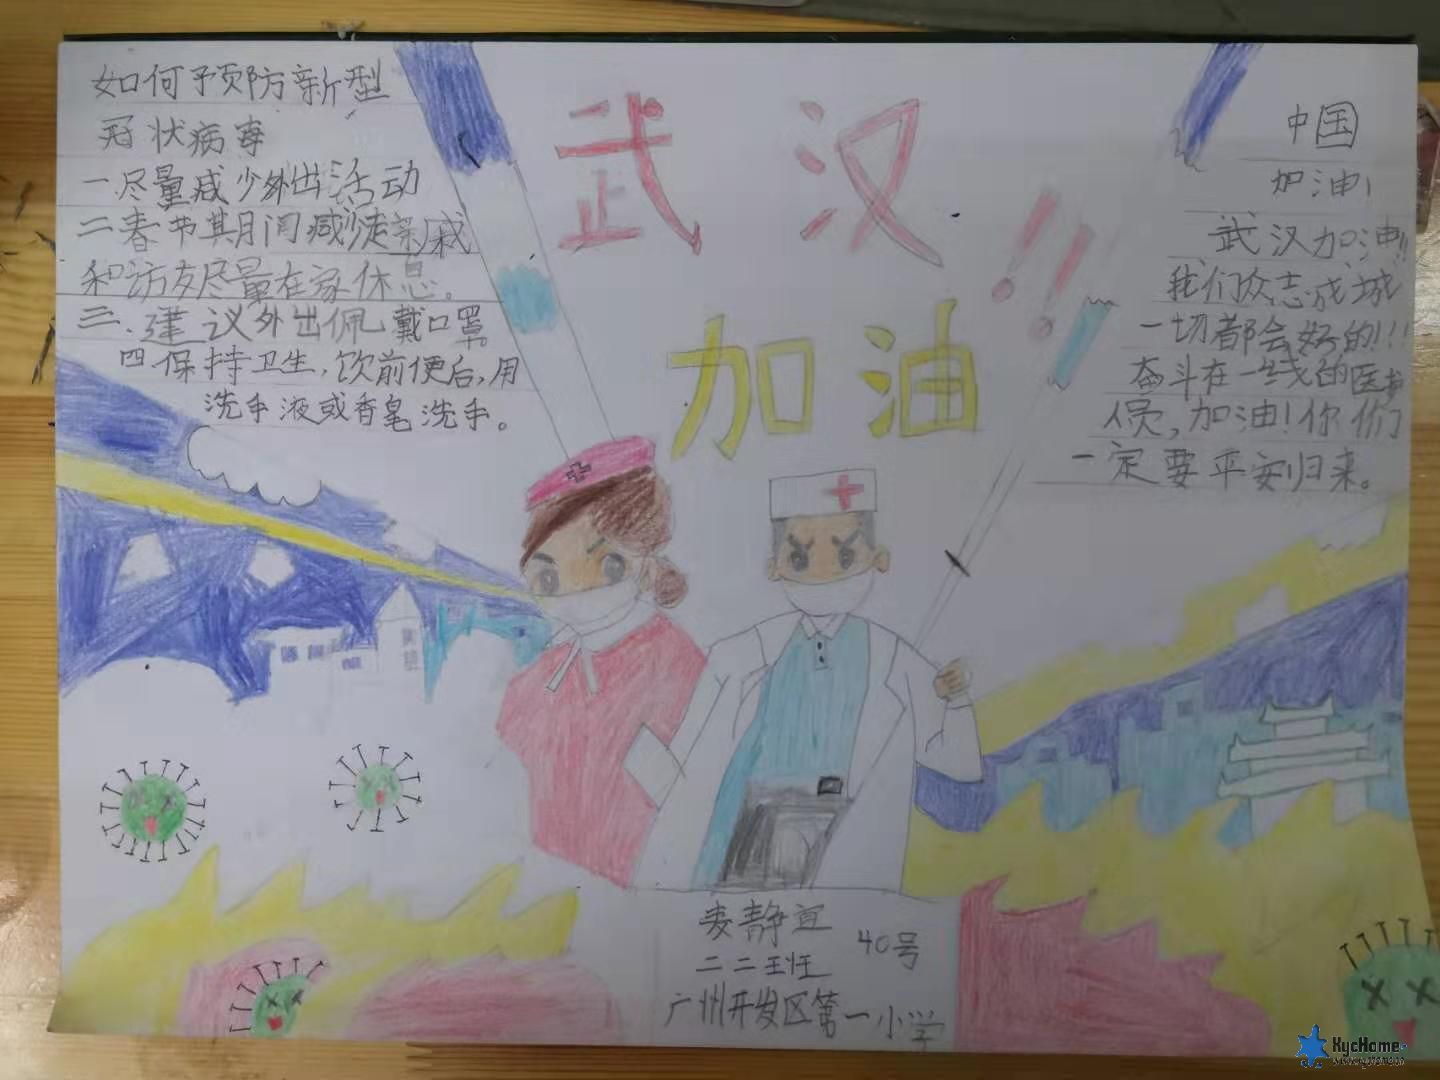 如何予预防新型
冠状病毒
一.尽量减少外出活动
二春节期间减少走亲戚
和访友尽量在家休息。
三.建议外出佩戴口罩
四保持卫生,饮前便后,用
洗手液或香皂洗手。
武汉!!
加油
中国
加油!
武汉加油!!
我们众志成城
一切都会好的!!!
奋斗在一线的医护
人员,加油!你们
一定要平安归来。
麦静宜
40号
二二班
广州开发区第一小学
KycHome